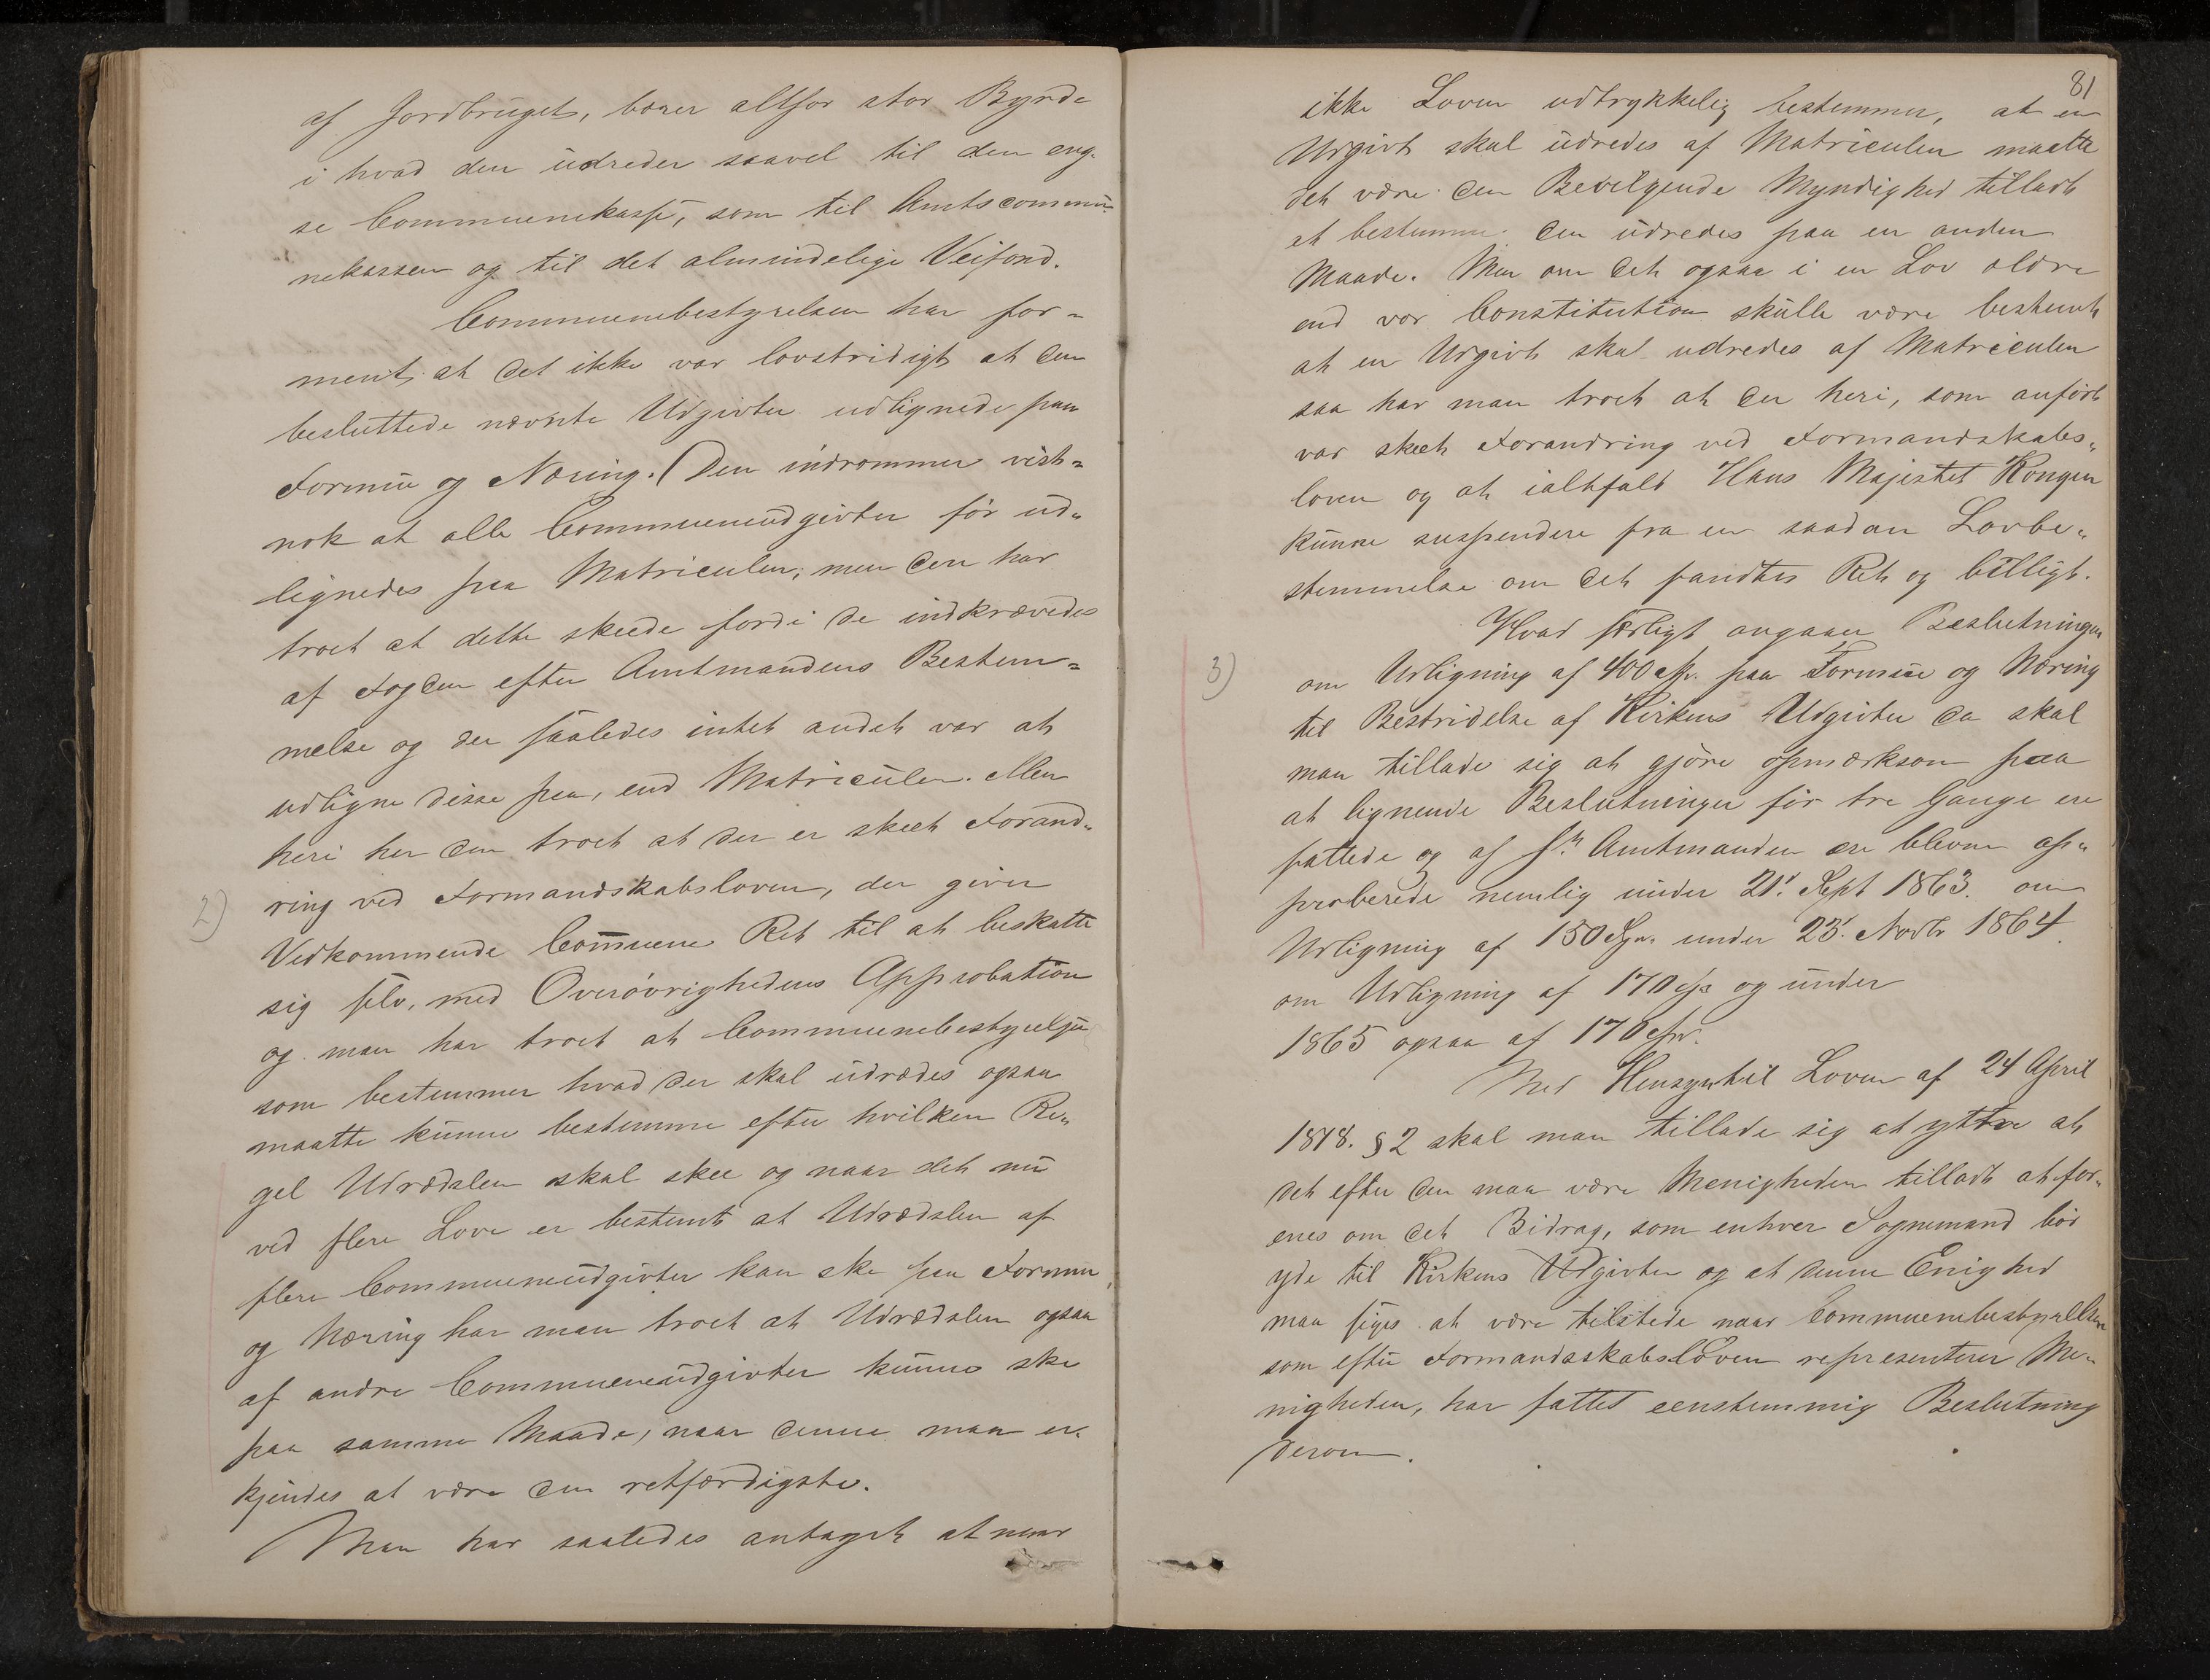 af Jordbruget, bærer altfor stor Byrde
i hvad den udreder saavel til den eng-
se Communekasse, som til Amtscommu-
nekassen og til det almindelige Veifond.
Communebestyrelsen har for-
ment at det ikke var lovstridigt at den
besluttede nævnte Udgivter udlignede paa
Formue og Næring. (Den indrømmer vist-
nok at alle Communeudgivter før ud-
lignedes paa Matriculen; men den har
troet at dette skeede fordi de indkrævedes
af Fogden efter Amtmandens Bestem-
melse og der saaledes intet andet var at
udligne disse paa, end Matriculen. Men
heri har den troet at der er skeet Forand-
2) ring ved Formandskabsloven, der giver
Vedkommende Commune Ret til at beskatte
sig selv, med Overøvrighedens Approbation
og man har troet at Communebestyrelsen
som bestemmer hvad der skal udredes ogsaa
maatte kunne bestemme efter hvilken Re-
gel Udredslen skal skee og naar det nu
ved flere Love er bestemt at Udredslen af
flere Communeudgivter kan ske paa Formue
og Næring har man troet at Udredslen ogsaa
af andre Communeudgivter kunne ske
paa samme Maade, naar denne maa er-
kjendes at være den retfærdigste.
Man har saaledes antaget at naar
81
ikke Loven udtrykkelig bestemmer, at en
Udgivt skal udredes af Matriculen maatte
det være den Bevilgende Myndighed tilladt
at bestemme den udredes paa en anden
Maade. Men om det ogsaa i en Lov ældre
end vor Constitution skulle være bestemt
at en Udgivt skal udredes af Matriculen
saa har man troet at der heri, som anført
var skeet Forandring ved Formandskabs-
loven og at ialtfald Hans Majestet Kongen
kunne suspendere fra en saadan Lovbe-
stemmelse om det fandtes Ret og billigt.
Hvad særligt angaaer Beslutningen
3) om Udligning af 400 Spd. paa Formue og Næring
til Bestridelse af Kirkens Udgivter da skal
man tillade sig at gjøre opmærksom paa
at lignende Beslutninger før tre Gange ere
fattede og af Hr. Amtmanden ere blevne ap-
proberede nemlig under 21. Sept 1863. om
Udligning af 150 Spd. under 23. Novbr 1864
om Udligning af 170 Spd og under
1865 ogsaa af 170 Spd.
Med Hensyn til Loven af 24 April
1818. § 2 skal man tillade sig at yttre at
det efter den maa være Menigheden tilladt at for-
enes om det Bidrag, som enhver Sognemand bør
yde til Kirkens Udgivter og at denne Enighed
maa siges at være tilstede naar Communebestyrelsen
som efter Formandsskabsloven representerer Me-
nigheden, har fattet eenstemmig Beslutning
derom.